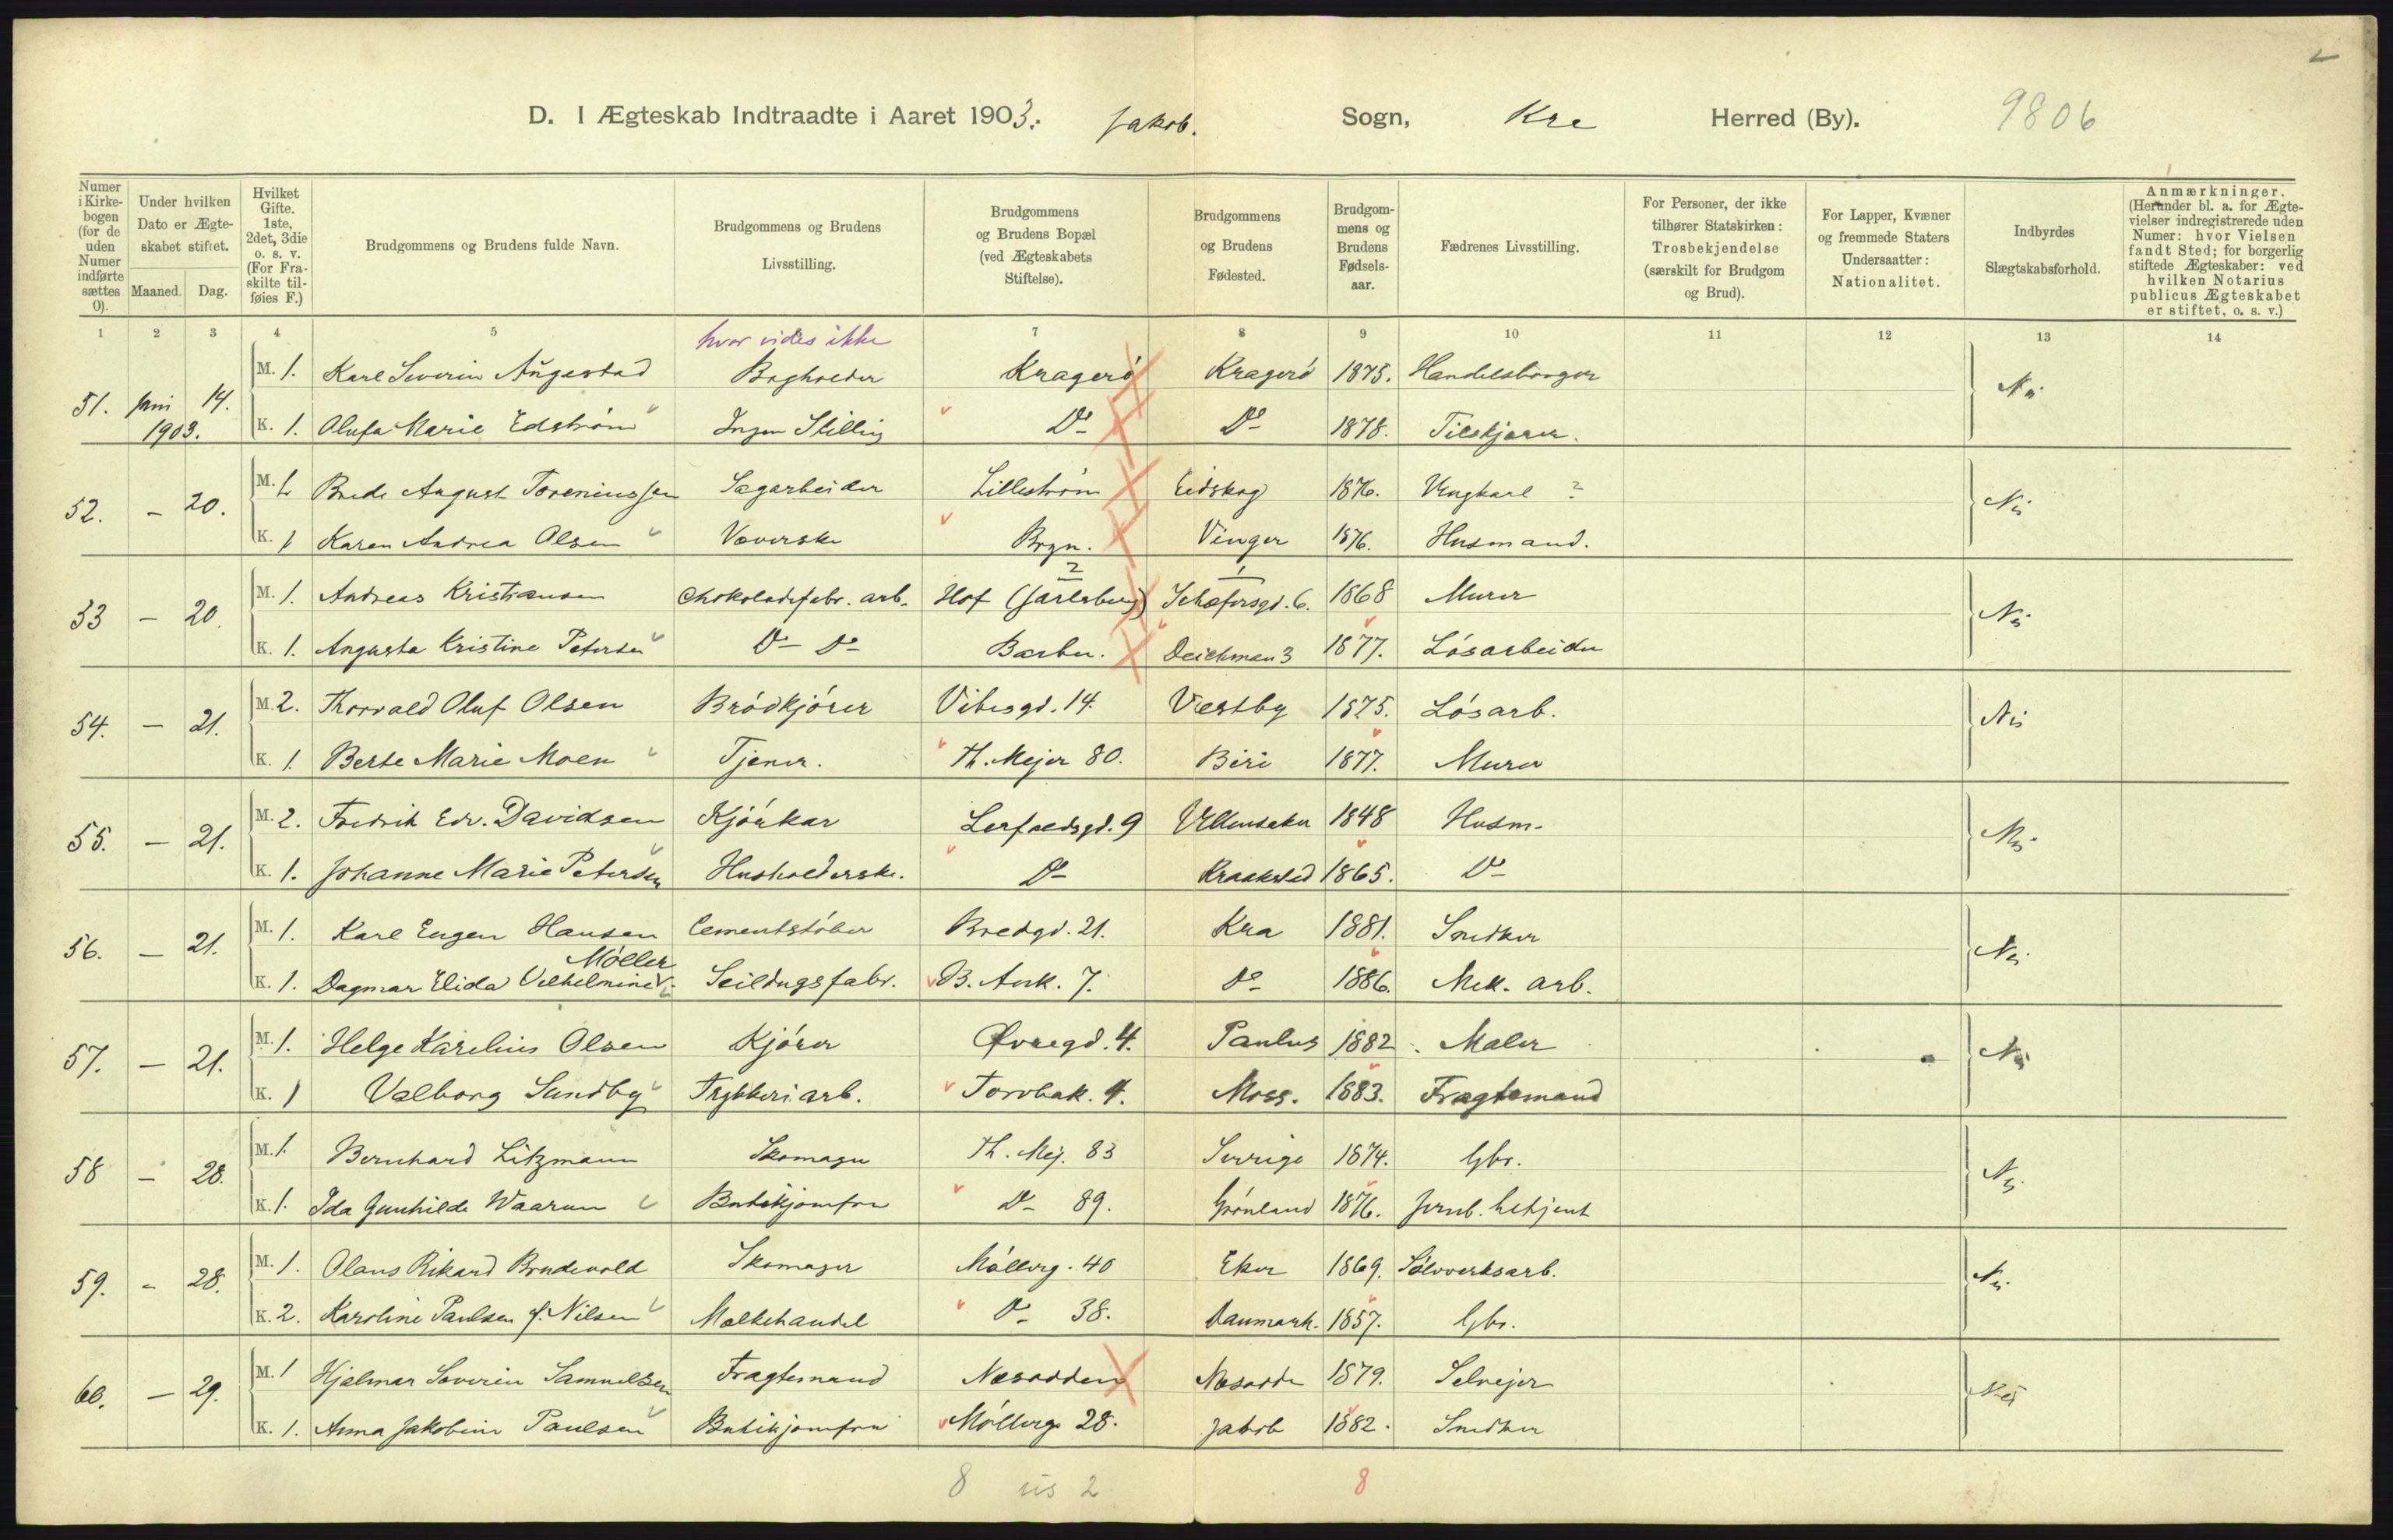 D. I Ægteskab Indtraadte i Aaret 1903. Jakob. Sogn, Kra Herred (By). 9806
Numer i Kirkebogen (for de uden Numer indførte sættes 0).
Under hvilken Dato er Ægteskabet stiftet.
Maaned. Dag.
Hvilket Gifte. 1ste, 2det, 3die o. s. v. (For Fraskilte tilføies F.)
Brudgommens og Brudens fulde Navn.
Brudgommens og Brudens Livsstilling.
Brudgommens og Brudens Bopæl (ved Ægteskabets Stiftelse).
Brudgommens og Brudens Fødested.
Brudgommens og Brudens Fødselsaar.
Fædrenes Livsstilling.
For Personer, der ikke tilhører Statskirken: Trosbekjendelse (særskilt for Brudgom og Brud).
For Lapper, Kvæner og fremmede Staters Undersaatter: Nationalitet.
Indbyrdes Slægtskabsforhold.
Anmærkninger. (Herunder bl. a. for Ægtevielser indregistrerede uden Numer: hvor Vielsen fandt Sted; for borgerlig stiftede Ægteskaber: ved hvilken Notarius publicus Ægteskabet er stiftet, o. s. v.)
1 2 3 4 5 7 8 9 10 11 12 13 14
hvor vides ikke
51. Juni 14. M. 1. Karl Severin Augestad Bogholder Kragerø Kragerø 1875. Handelsborger Nei
1903. K. 1. Olufa Marie Edstrøm Ingen Stilling Do Do 1878. Tilskjærer.
52. — 20. M. 1. Brede August Toreniussen Sagarbeider Lillestrøm Eidskog 1876. Ungkarl ? Nei
K. 1 Karen Andrea Olsen Væverske Bryn. Vinger 1876. Husmand.
2 1
53 — 20. M. 1. Andreas Kristiansen Chokoladefabr. arb. Hof (Jarlsberg) Schæfersgd. 6. 1868 Murer Nei
K. 1. Augusta Kristine Petersen Do Do Barbu. Deichman 3 1877. Løsarbeider
54. — 21. M. 2. Thorvald Oluf Olsen Brødkjører Vibesgd. 14. Vestby 1875. Løsarb. Nei
K. 1. Berte Marie Moen Tjener. Th. Mejer 80. Biri 1877. Murer
55. — 21. M. 2. Fredrik Edv. Davidsen Kjørkar Lerfaldsgd. 9 Ullensaker 1848 Husm. Nei
K. 1. Johanne Marie Petersen Husholderske. Do Kraakstad 1865. Do
56. — 21. M. 1. Karl Eugen Hansen Cementstøber Bredgd. 21. Kra 1881. Snedker Nei
Møller
K. 1. Dagmar Elida Vilhelmine Seildugsfabr. B. Ank. 7. Do 1886. Mek. arb.
57. — 21. M. 1. Helge Karelius Olsen Kjører Øvregd. 4. Paulus 1882. Maler Nei
K. 1 Valborg Sundby Trykkeriarb. Torvbak. 4. Moss. 1883. Fragtemand
58 — 28. M. 1. Bernhard Litzmann Skomager Th. Mej. 83 Sverige 1874. Gbr. Nei
K. 1. Ida Gunhilde Waarum Butikjomfru Do 89. Grønland 1876. Jernb. betjent
59. — 28. M. 1. Olaus Rikard Brudevold Skomager Møllerg. 40 Eker 1869. Sølvverksarb. Nei
K. 2. Karoline Paulsen f. Nilsen Melkehandel Do 38. Danmark. 1857. Gbr.
60. — 29. M. 1 Hjalmar Severin Samuelsen Fragtemand Næsodden Næsodde 1879. Selvejer Nei
K. 1. Anna Jakobine Paulsen Butikjomfru Møllerg. 28. Jakob 1882. Snedker
8 2 8